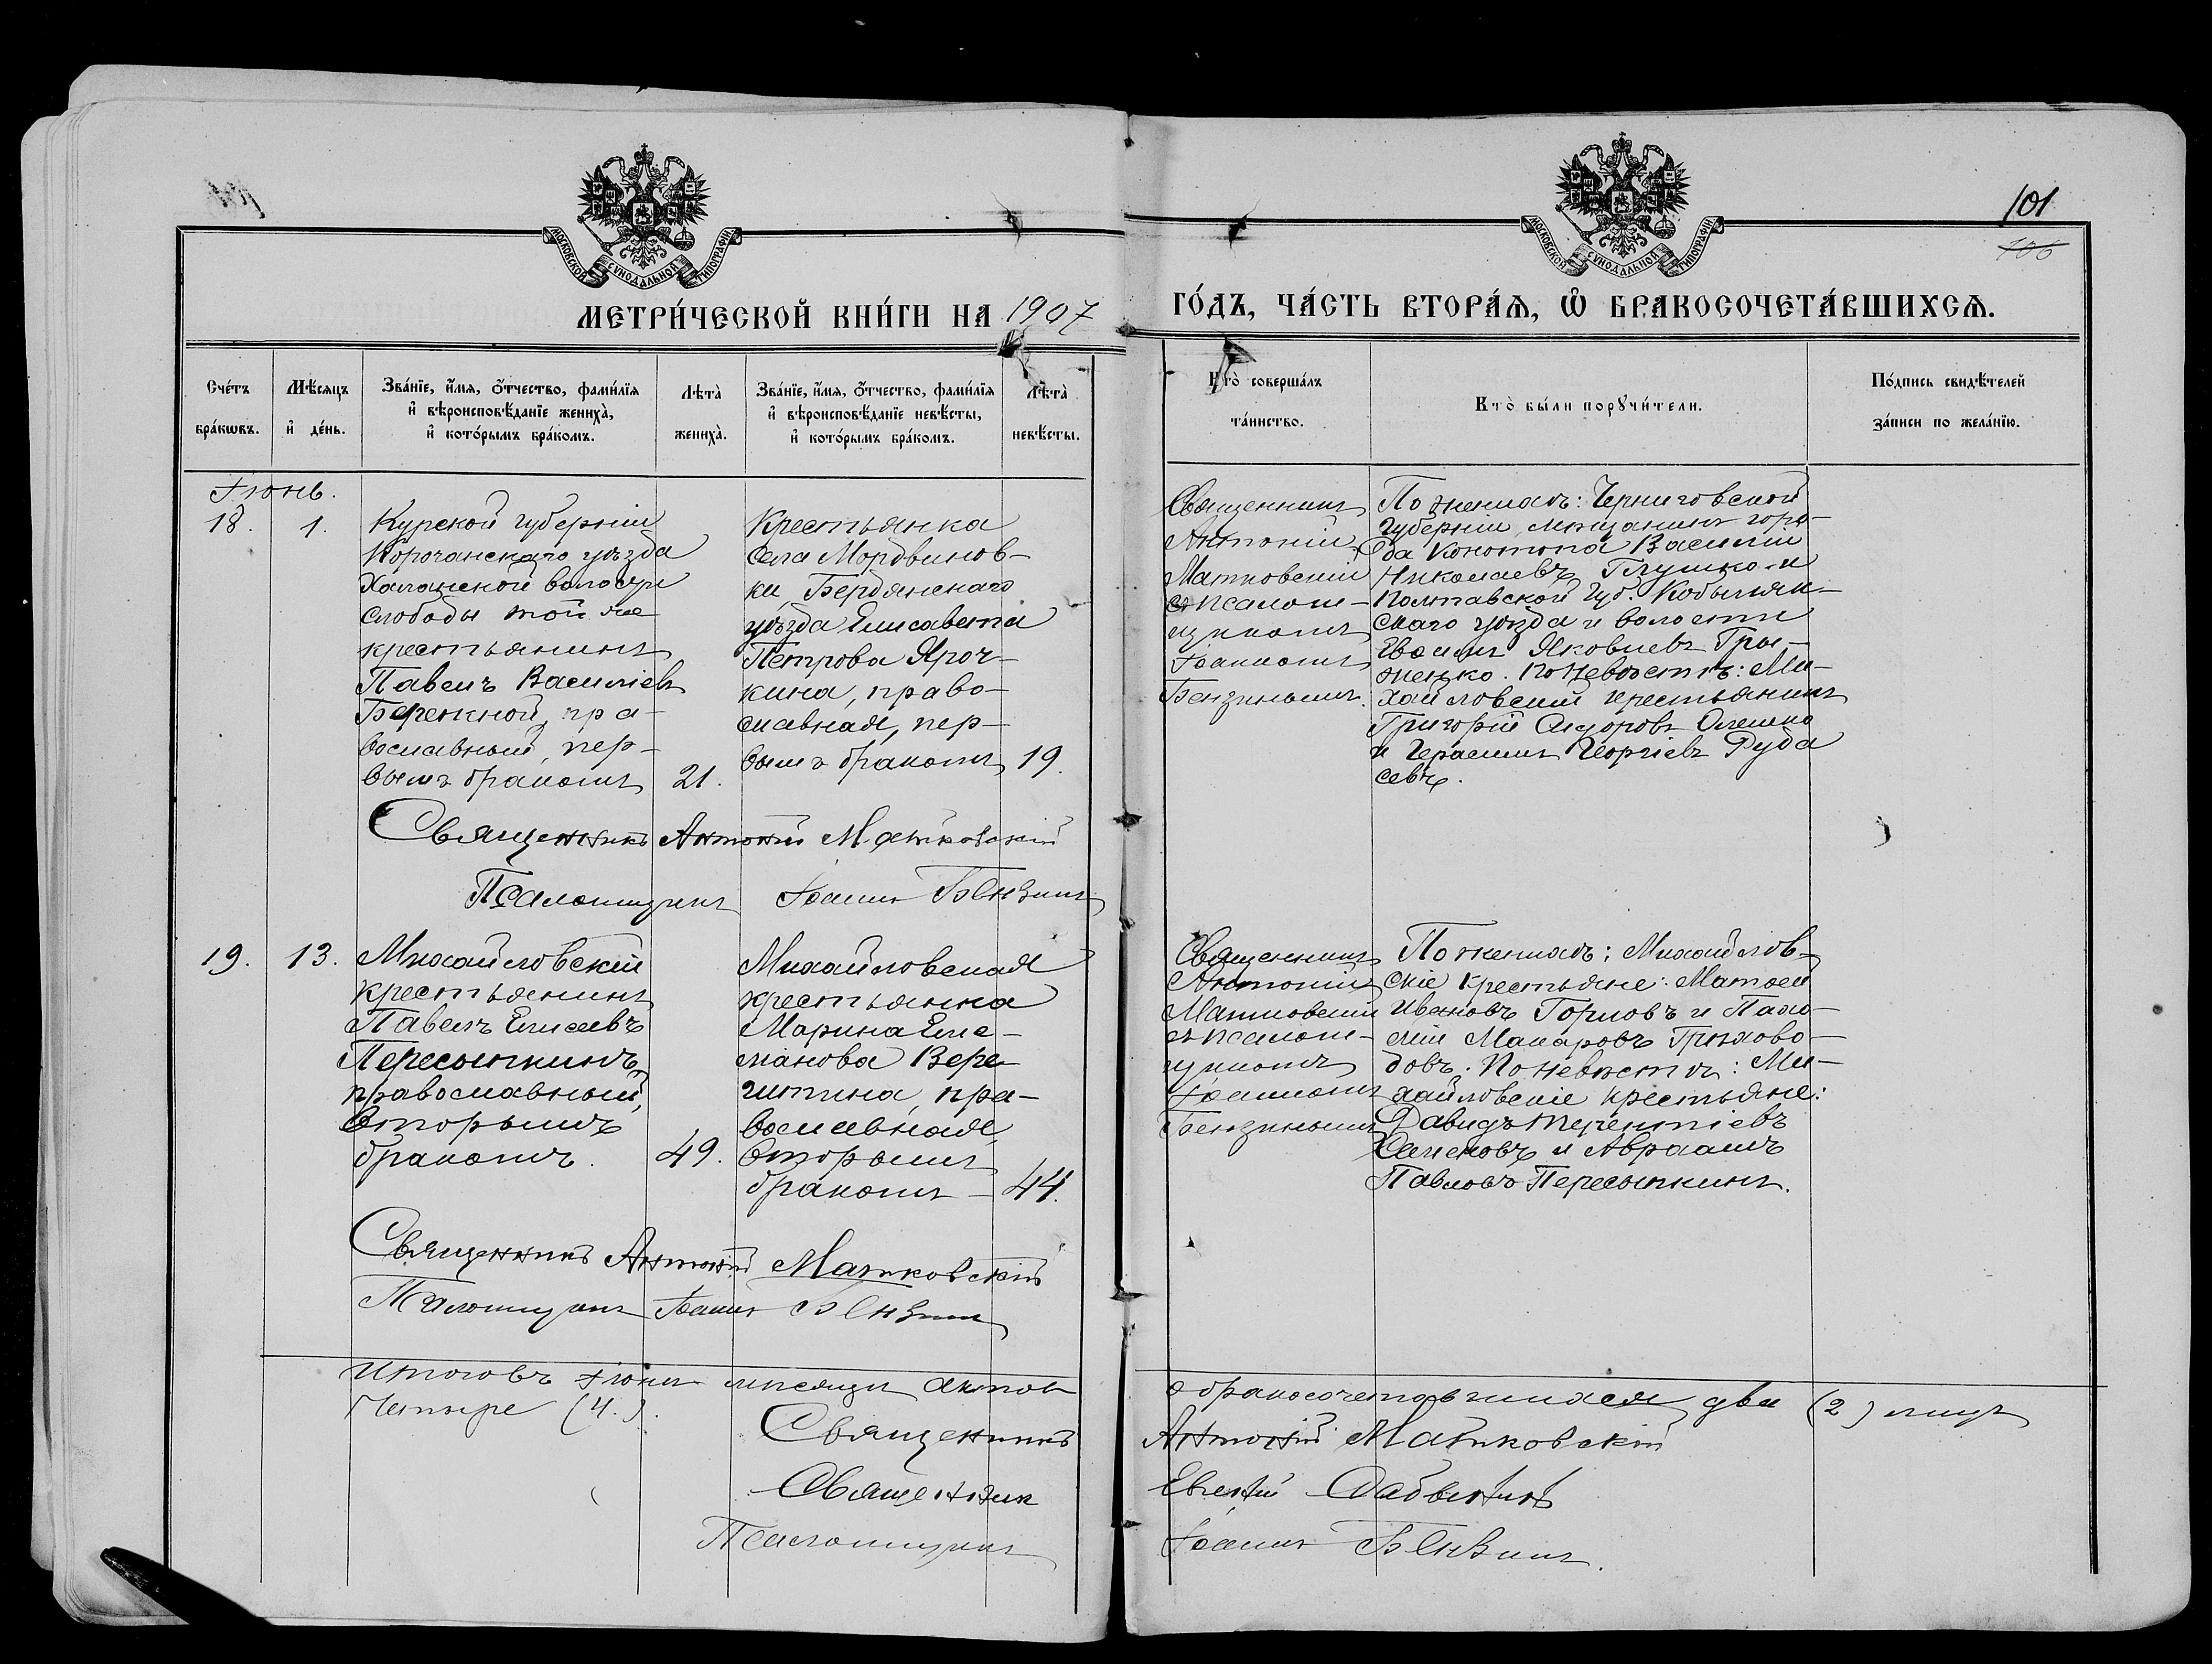 101
106
МОСКОВСКОЙ СУНОДАЛЬНОЙ ТИПОГРАФІИ
МОСКОВСКОЙ СУНОДАЛЬНОЙ ТИПОГРАФІИ
МЕТРИ́ЧЕСКОЙ КНИ́ГИ НА 1907
ГО́ДЪ, ЧА́СТЬ ВТОРА́Ѧ, Ѽ БРАКОСОЧЕТА́ВШИХСѦ.
Сче́тъ
бра́кѡвъ.
Мѣ́сяцъ
и҆ де́нь.
Зва́нїе, и҆́мя, ѻ҆́тчество, фами́лїя
и҆ вѣроисповѣ́данїе жениха̀,
и҆ кото́рымъ бра́комъ.
Лѣта̀
жениха̀.
Зва́нїе, и҆́мя, ѻ҆́тчество, фами́лїя
и҆ вѣроисповѣ́данїе невѣ́сты,
и҆ кото́рымъ бра́комъ.
Лѣта̀
невѣ́сты.
Кто̀ соверша́лъ
та́инство.
Кто̀ бы́ли порꙋчи́тели.
По́дпись свидѣ́телей
за́писи по жела́нїю.
Іюнь.
18.
1.
Курской губерніи
Корочанскаго уѣзда
Халанской волости
слободы той же
крестьянинъ
Павелъ Васильевъ
Бережной, пра-
вославный, пер-
вымъ бракомъ
21.
Крестьянка
села Мордвинов-
ки, Бердянскаго
уѣзда Елисавета
Петрова Яроч-
кина, право-
славная, пер-
вымъ бракомъ
19.
Священникъ
Антоній
Матковскій
съ псалом-
щикомъ
Іоанномъ
Бензинымъ.
По женихѣ: Черниговской
губерніи мѣщанинъ горо-
да Конотопа Василій
Николаевъ Глушко и
Полтавской губ. Кобыляк-
скаго уѣзда и волости
Яковлевъ Гры-
ценко. По невѣстѣ: Ми-
хайловскій крестьянинъ
Григорій Сидоровъ Олешко
и Герасимъ Георгіевъ Руда
севъ.
Священникъ Антоній Матковскій
Псаломщикъ Іоаннъ Бензинъ
19.
13.
Михайловскій
крестьянинъ
Павелъ Елисеевъ
Пересыпкинъ,
православный,
вторымъ
бракомъ.
49.
Михайловская
крестьянка
Марина Еме-
льянова Вере-
тина, пра-
вославная,
вторымъ
бракомъ
44.
Священникъ
Антоній
Матковскій
съ псалом-
щикомъ
Іоанномъ
Бензинымъ
По женихѣ: Михайлов-
скіе крестьяне: Матвей
Ивановъ Горловъ и Пахо-
мій Макаровъ
довъ. По невѣстѣ: Ми-
хайловскіе крестьяне:
Давидъ Терентіевъ
Семеновъ и Авраамъ
Павловъ Пересыпкинъ.
Священникъ Антоній Матковскій
Псаломщикъ Іоаннъ Бензинъ
Итого въ Іюнѣ мѣсяцѣ актовъ
о бракосочетавшихся два (2) лицъ
Четыре (4.).
Священникъ Антоній Матковскій
Священникъ Евгеній
Псаломщикъ Іоаннъ Бензинъ.